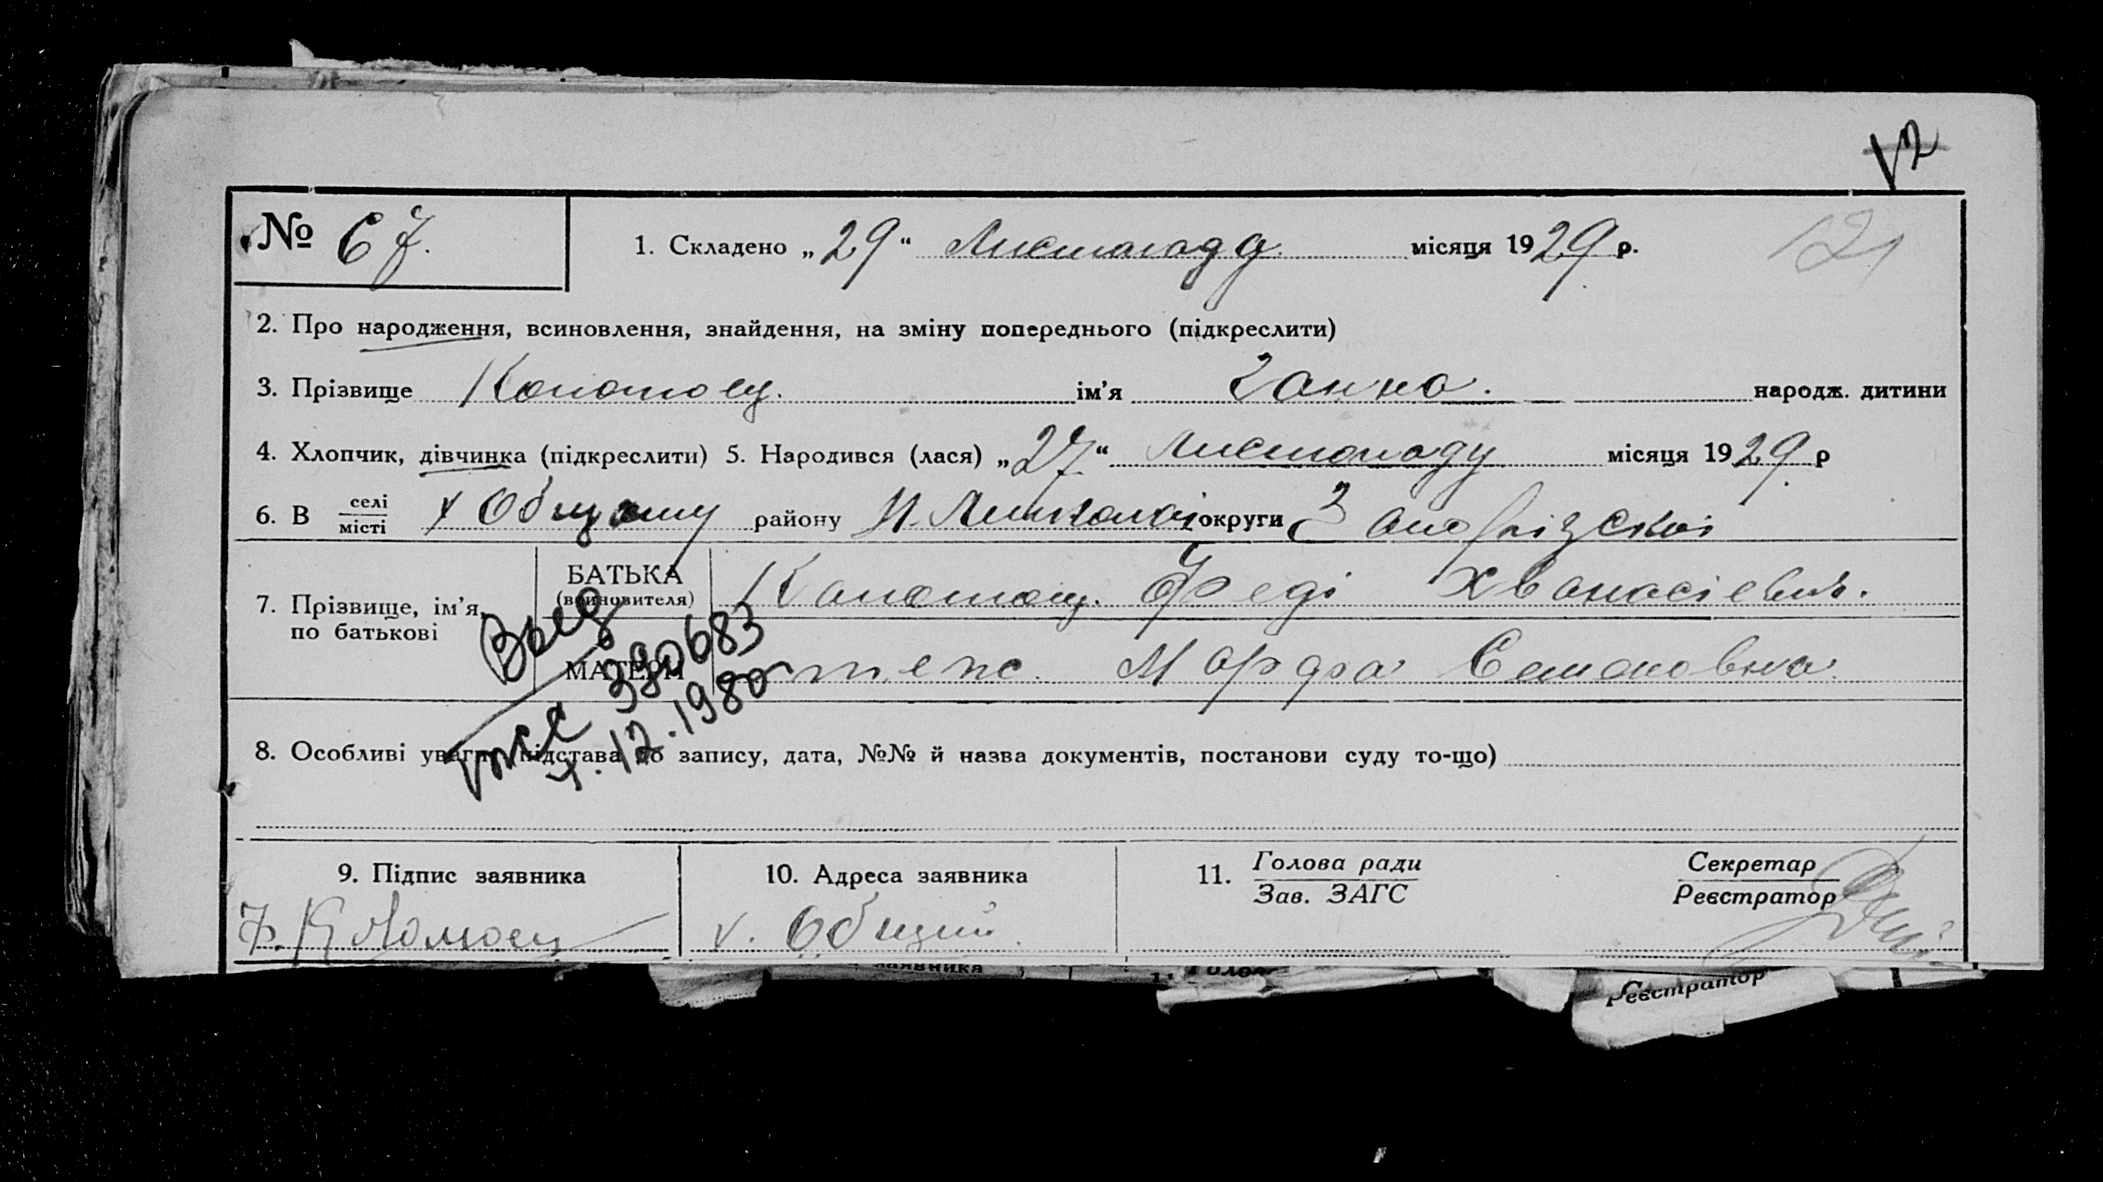 12
№ 67.
1. Складено „29“ Листопаду місяця 1929 р.
121
2. Про народження, всиновлення, знайдення, на зміну попереднього (підкреслити)
3. Прізвище Копотоец. ім’я Ганна. народж. дитини
4. Хлопчик, дівчинка (підкреслити) 5. Народився (лася) „27“ Листопаду місяця 1929 р
6. В селі/місті х Общому району округи Запорізській
7. Прізвище, ім’я, по батькові
БАТЬКА (всиновителя) Федір Хванасієвич.
МАТЕРИ теж. Марфа Семеновна.
380683
12.1980
8. Особливі уваги підстава до запису, дата, №№ й назва документів, постанови суду то-що)
9. Підпис заявника
10. Адреса заявника
11. Голова ради
Зав. ЗАГС
Секретар
Реєстратор
Ф.
х. Общий
заявника
Голов
Реєстратор